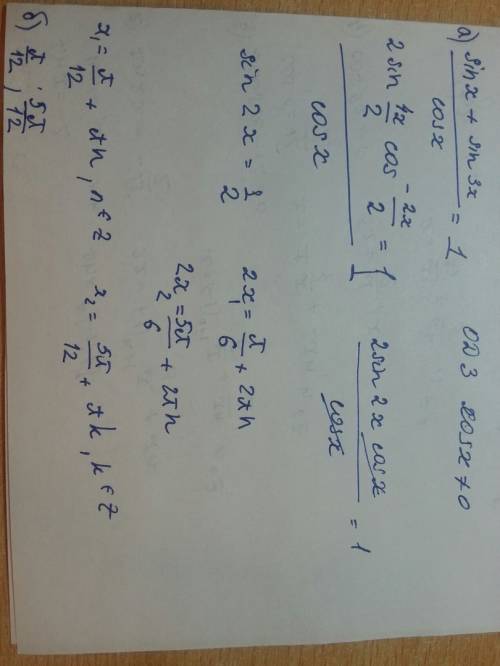 а) (sin x + sin 3x)/cos x = 1 ОДЗ cos x ≠ 0
(2 sin 4x/2 cos -2x/2)/cos x = 1/1 (2 sin 2x cos x)/cos x = 1
sin 2x = 1/2 2x₁ = π/6 + 2πn
2x₂ = 5π/6 + 2πn
x₁ = π/12 + πn, n ∈ z x₂ = 5π/12 + πk, k ∈ z
б) π/12, 5π/12